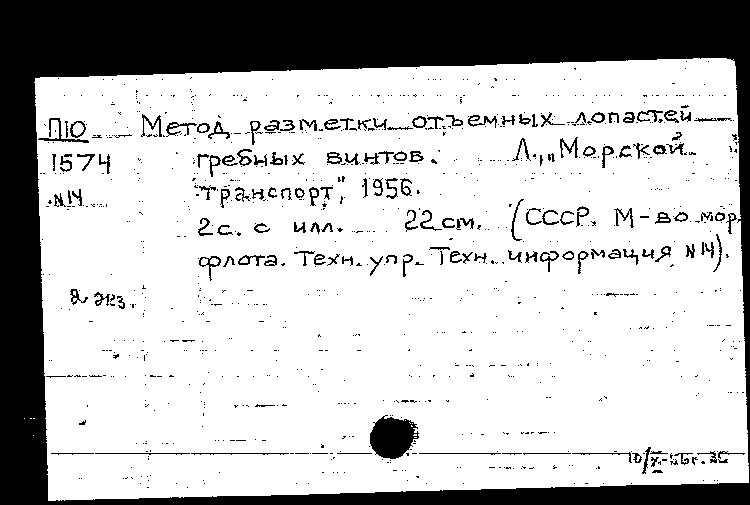 П10 Метод разметки отъемных лопастей
1574 гребных винтов. Л., „Морской
№14 транспорт", 1956.
2с. с илл. 22 см. (СССР. М-во мор.
флота. Техн. упр. Техн. информация №14).
2 экз.
10/X-56г.